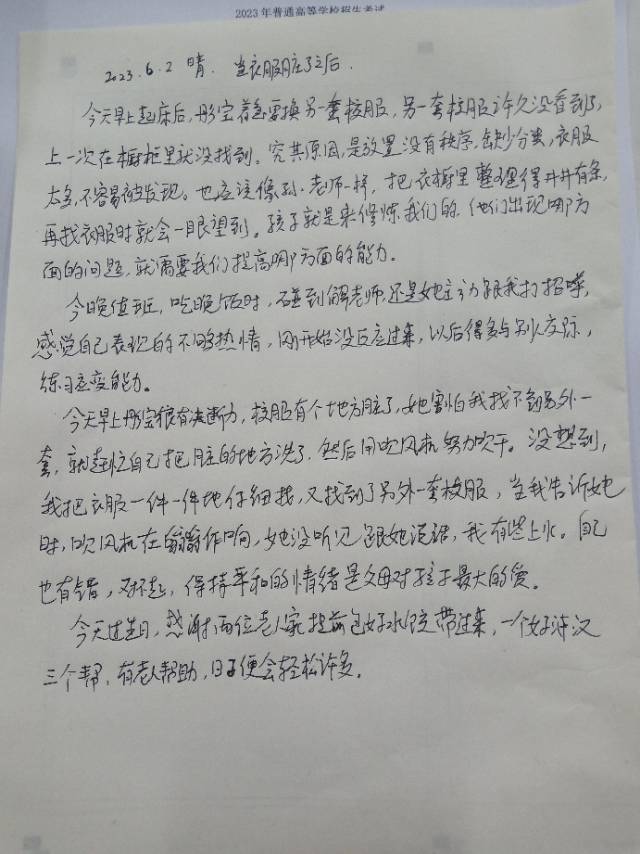 2023年普通高等学校招生考试
2023.6.2 晴. 当衣服脏了之后.
今天早上起床后,彤宝着急要换另一套校服,另一套校服许久没看到了,
上一次在橱柜里就没找到。究其原因,是放置没有秩序,缺少分类,衣服
太多,不容易被发现。也应该像孙老师一样,把衣橱里整理得井井有条,
再找衣服时就会一眼望到。孩子就是来修炼我们的,他们出现哪方
面的问题,就需要我们提高哪方面的能力。
今晚值班,吃晚饭时,碰到解老师,还是她主动跟我打招呼,
感觉自己表现的不够热情,刚开始没反应过来,以后得多与别人交际,
练习应变能力。
今天早上彤宝很有决断力,校服有个地方脏了,她害怕我找不到另外一
套,就赶忙自己把脏的地方洗了,然后用吹风机努力吹干。没想到,
我把衣服一件一件地仔细找,又找到了另外一套校服,当我告诉她
时,吹风机在嗡嗡作响,她没听见跟她说话,我有些上火。自己
也有错,对不起,保持平和的情绪是父母对孩子最大的爱。
今天过生日,感谢两位老人家提前包好水饺带过来,一个好汉
三个帮,有老人帮助,日子便会轻松许多。